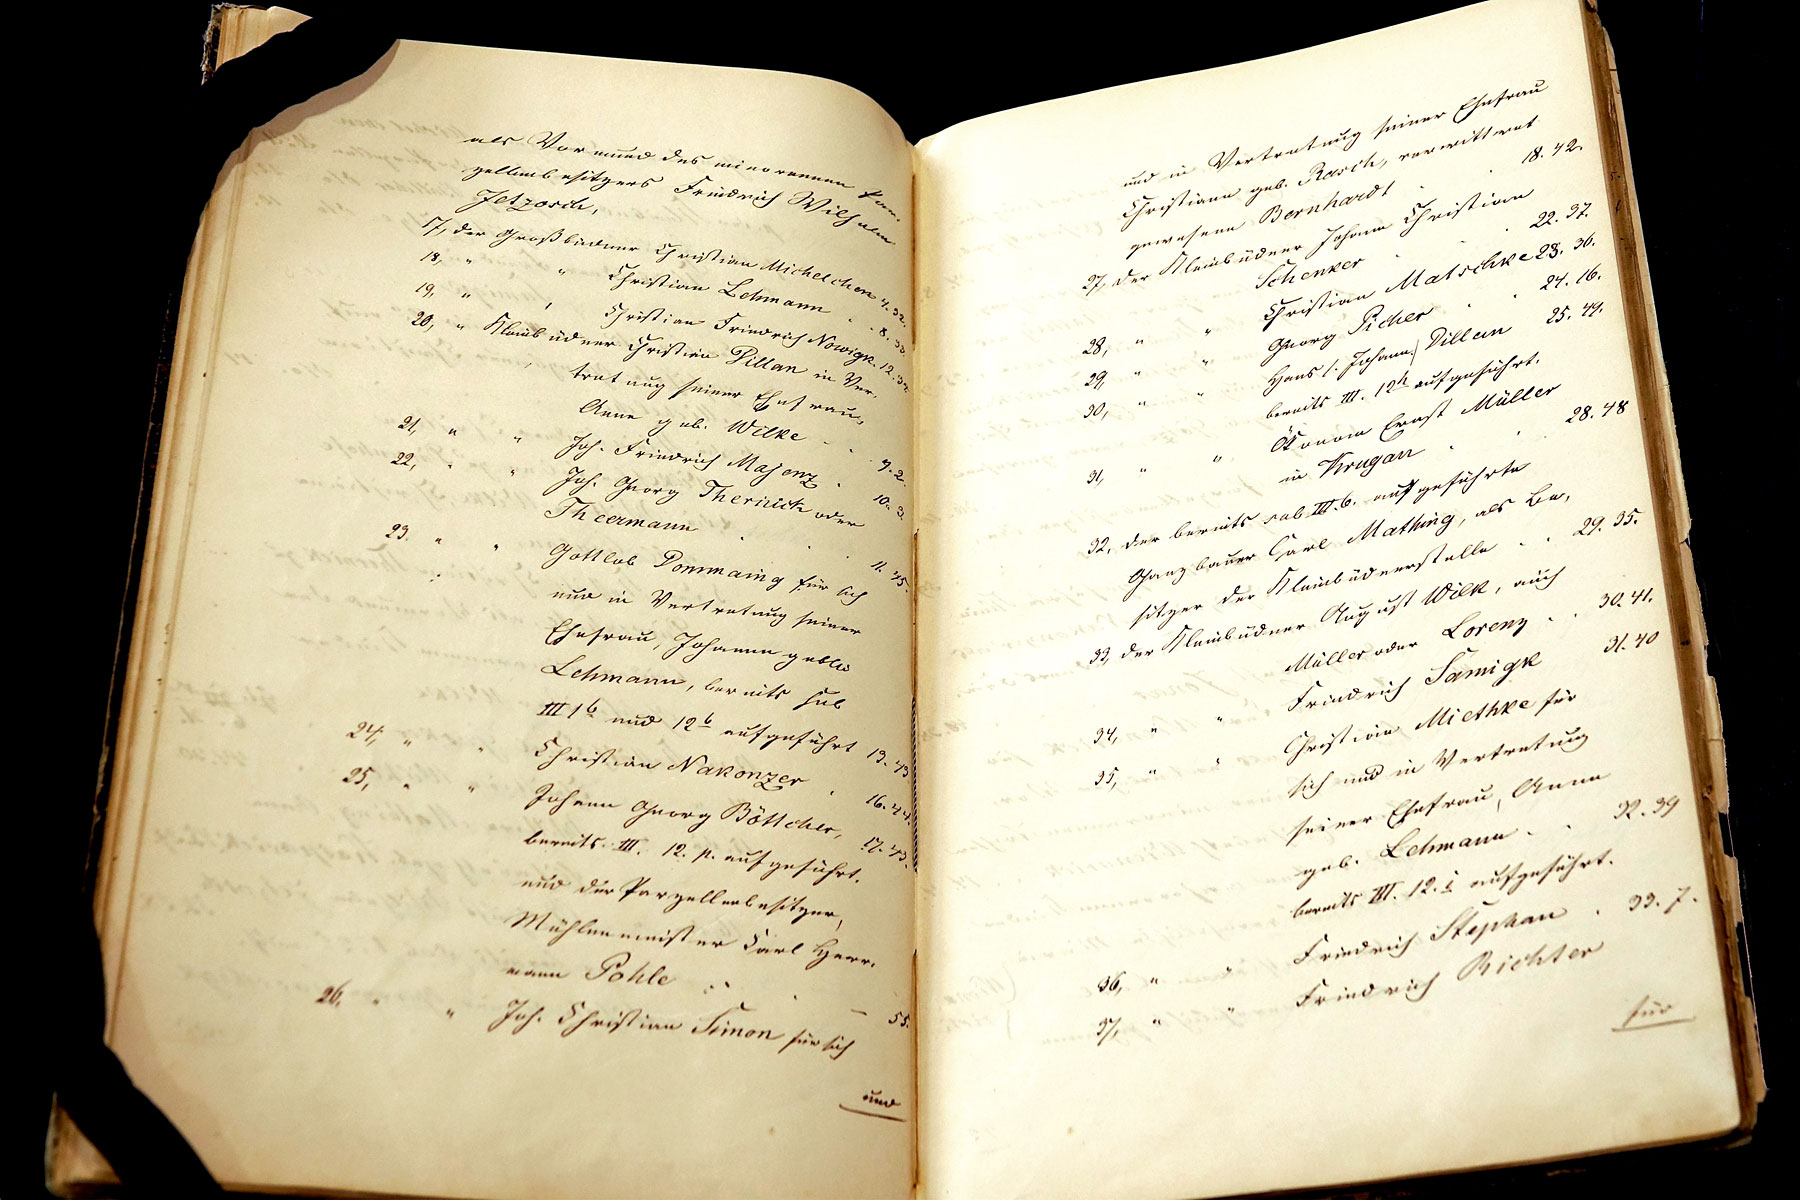 als Vormund des minorennen Par-
zellenbesitzers Friedrich Wilhelm
Jetzosch,
17, der Großbüdner Christian Michelchen 4. 32.
18, " " Christian Lehmann . . 8. 33.
19, " " Christian Friedrich Nowigk. 12.
20, " Kleinbüdner Christian Dillan in Ver-
tretung seiner Ehefrau,
Anne geb. Wilke . . 9. 2.
21, " " Joh. Friedrich Majenz . 10. 3.
22, " " Joh. Georg Thernick oder
Theermann . . . 11. 45.
23. " " Gottlob Dommaing für sich
und in Vertretung seiner
Ehefrau, Johanne geborne
Lehmann, bereits sub
III 1b und 12b aufgeführt 13. 43
24, " " Christian Nakonzer . 16. 44.
25, " " Johann Georg Böttcher, 17. 43.
bereits III. 12. p. aufgeführt.
und der Parzellenbesitzer,
Mühlenmeister Carl Herr-
mann Pohle . . — 55.
26. " " Joh. Christian Simon für sich
und
und in Vertretung seiner Ehefrau
Christiane geb. Rasch, verwittwet
gewesene Bernhardt . . 18. 42.
27, der Kleinbüdner Johann Christian
Schenker . . 22. 37.
28, " " Christian Matschke 23. 36.
29, " " Georg Picher . . 24. 16.
30, " " Hans /: Johann:/ Dillan 25. 49.
bereits III. 12h aufgeführt.
31, " " Ökonom Ernst Müller
in Krugau . . 28. 48
32, der bereits sub III. 6. aufgeführte
Ganzbauer Carl Mathing, als Be-
sitzer der Kleinbüdnerstelle . . 29. 35.
33, der Kleinbüdner August Wilk, auch
Müller oder Lorenz . . 30. 41.
34, " " Friedrich Samigk 31. 40
35, " " Christian Miethke für
sich und in Vertretung
seiner Ehefrau, Anna
geb. Lehmann . . 32. 39
bereits III. 12. i aufgeführt.
36, " " Friedrich Stephan . 33. 7.
37, " " Friedrich Richter
für